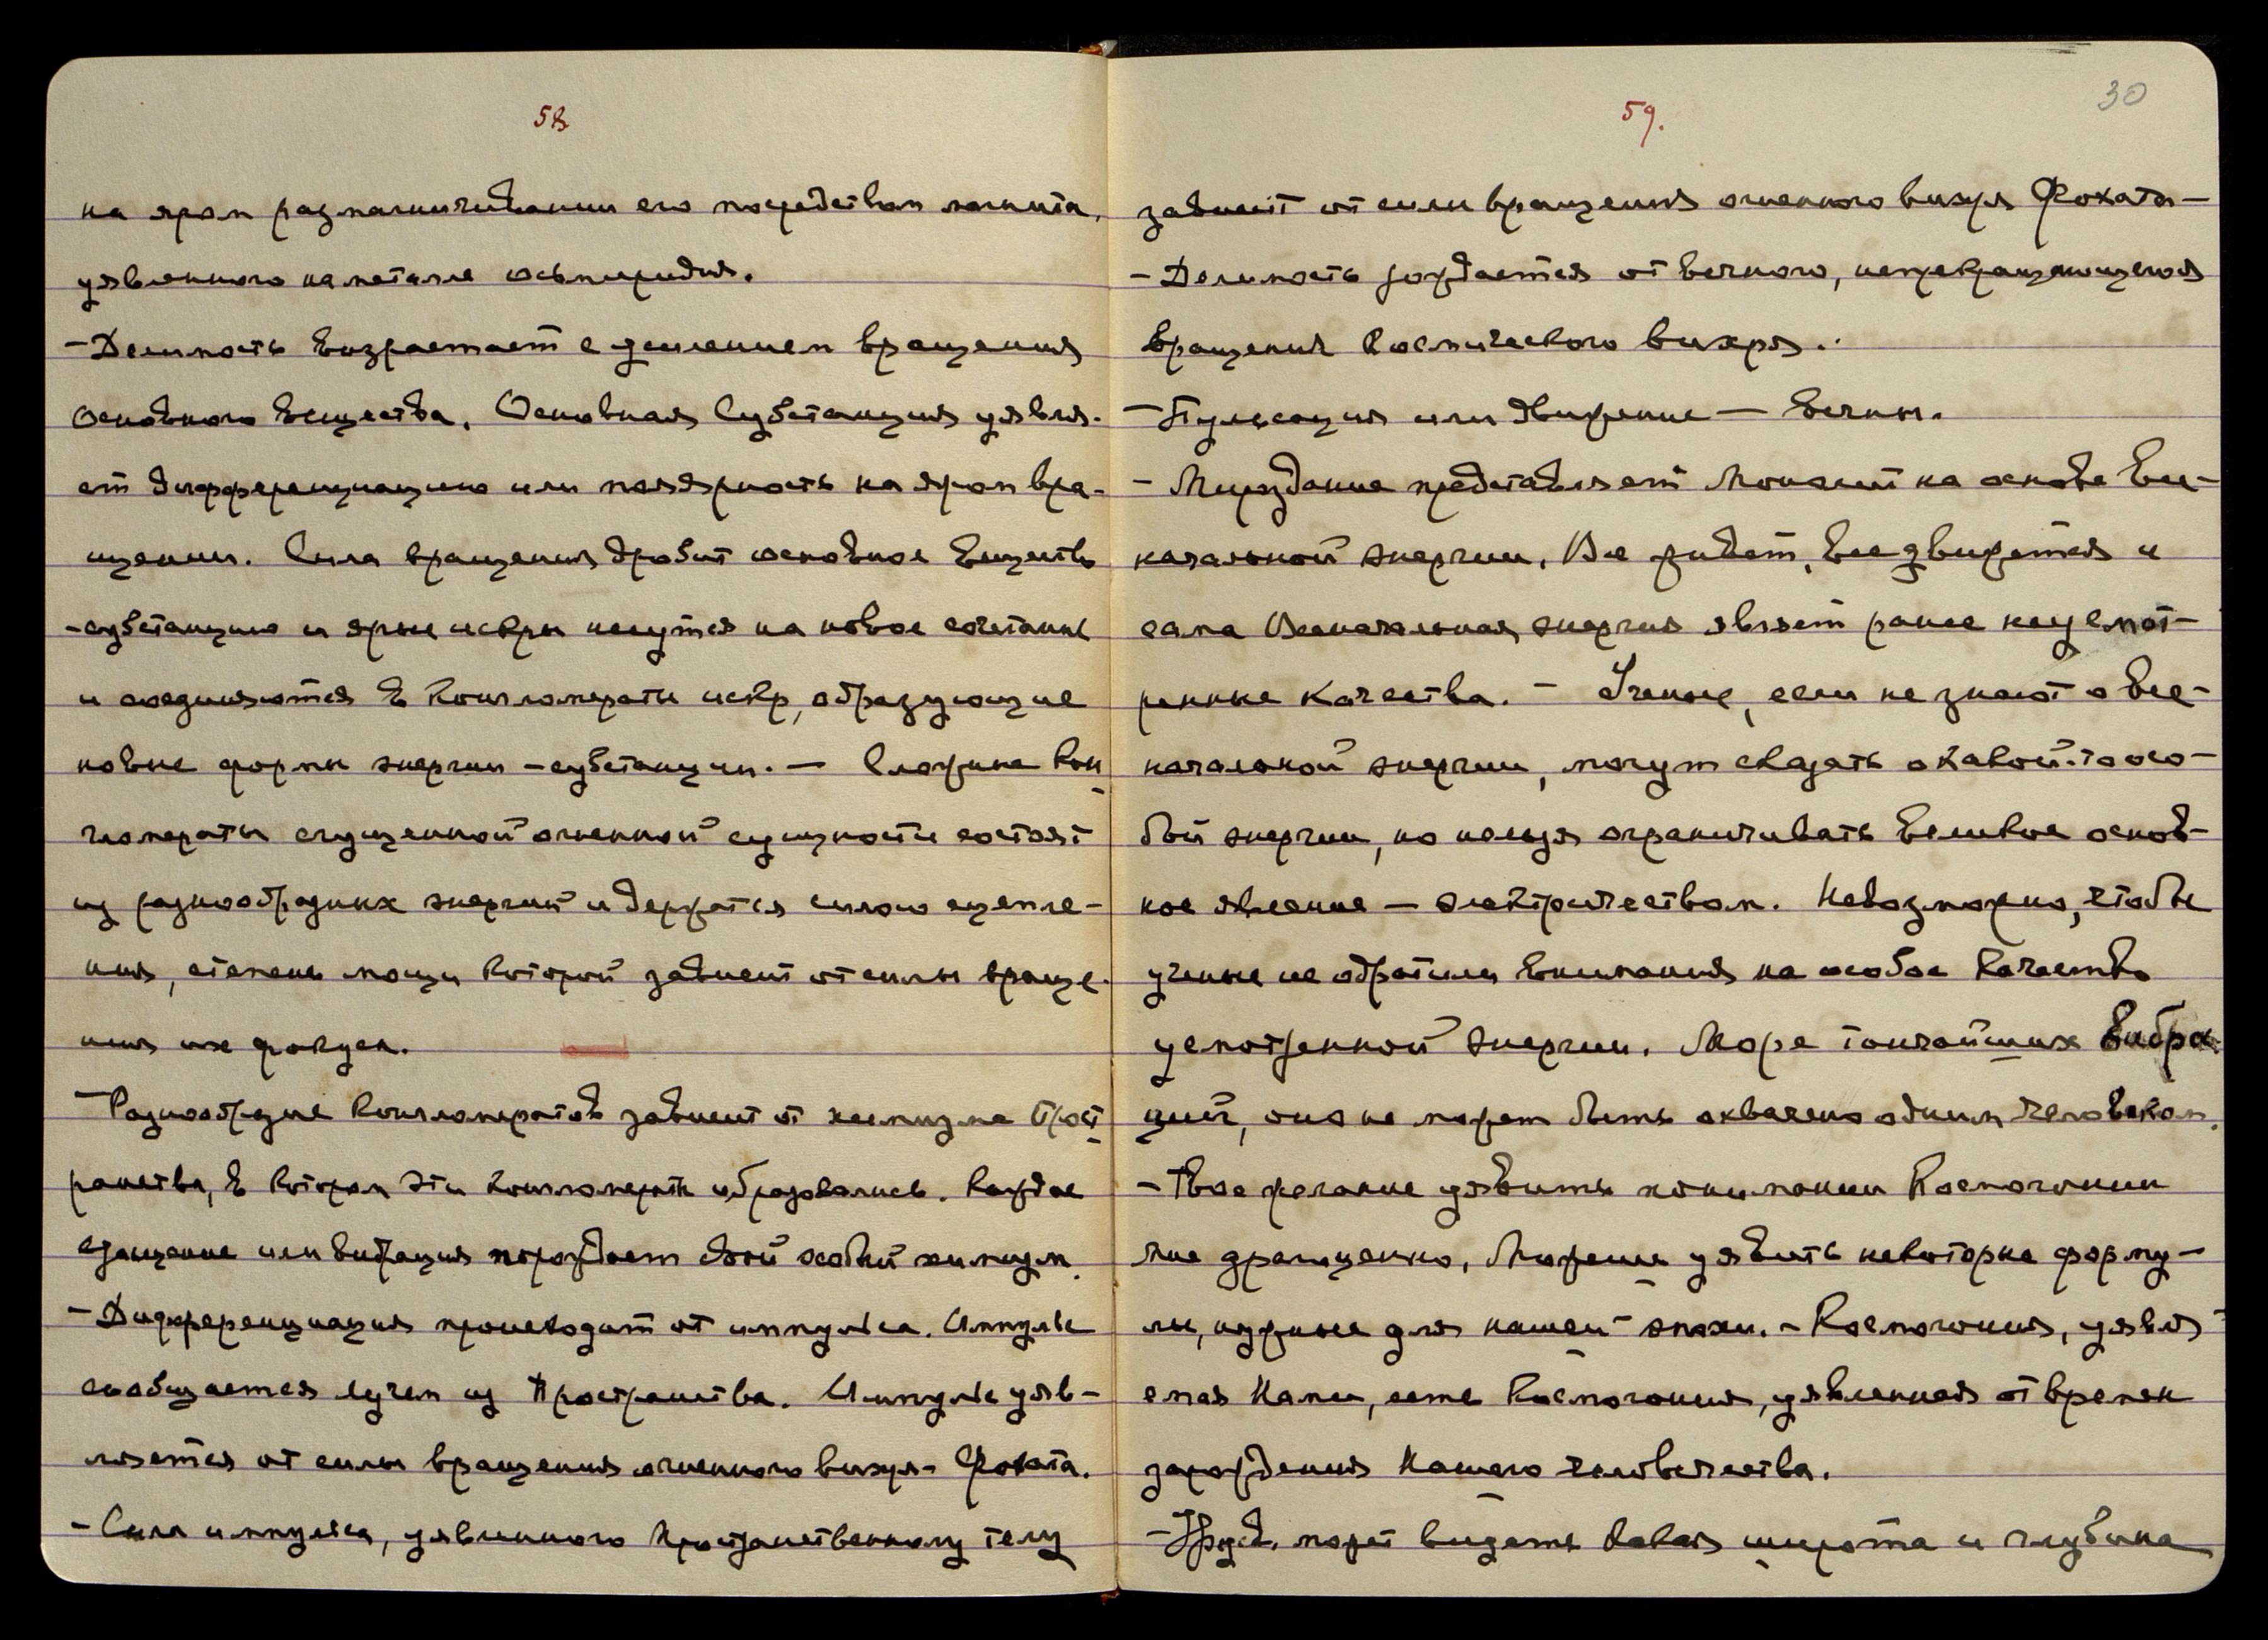 58
на яром размагничивании его посредством магнита,
уявленного на металле осьмиридия.
– Делимость возрастает с усилением вращения
Основного вещества. Основная Субстанция уявля-
ет дифференциацию или полярность на яром вра-
щении. Сила вращения дробит основное вещество
-субстанцию и ярые искры несутся на новое сочетание
и соединяются в конгломераты искр, образующие
новые формы энергии – субстанции. – Сложные кон
гломераты сгущенной огненной сущности состоят
из разнообразных энергий и держатся силою сцепле-
ния, степень мощи которой зависит от силы враще-
ния их фокуса.
– Разнообразие конгломератов зависит от химизма Прост
ранства, в котором эти конгломераты образовались. Каждое
сгущение или вибрация порождает свой особый химизм.
– Дифференциация происходит от импульса. Импульс
сообщается лучем из Пространства. Импульс уяв-
ляется от силы вращения огненного вихря – Фохата.
– Сила импульса, уявленного пространственному телу
59. 30
зависит от силы вращения огненного вихря Фохата –
– Делимость рождается от вечного, непрекращающегося
вращения Космического вихря.
– Пульсация или движение – вечны.
– Мироздание представляет Монолит на основе Все-
начальной энергии. Все живет, все движется и
сама Всеначальная энергия являет ранее неусмот-
ренные качества. – Ученые, если не знают о Все-
начальной энергии, могут сказать о какой-то осо-
бой энергии, но нельзя ограничивать великое основ-
ное явление – электричеством. Невозможно, чтобы
ученые не обратили внимания на особое качество
усмотренной энергии. Море тончайших вибра
ций, оно не может быть охвачено одним человеком.
– Твое желание уявить понимании Космогонии
мне драгоценно. Можешь уявить некоторые форму-
лы, нужные для нашей эпохи. – Космогония, уявля
емая Нами, есть Космогония, уявленная от времен
зарождения Нашего человечества.
– Урусв. может видеть какая широта и глубина